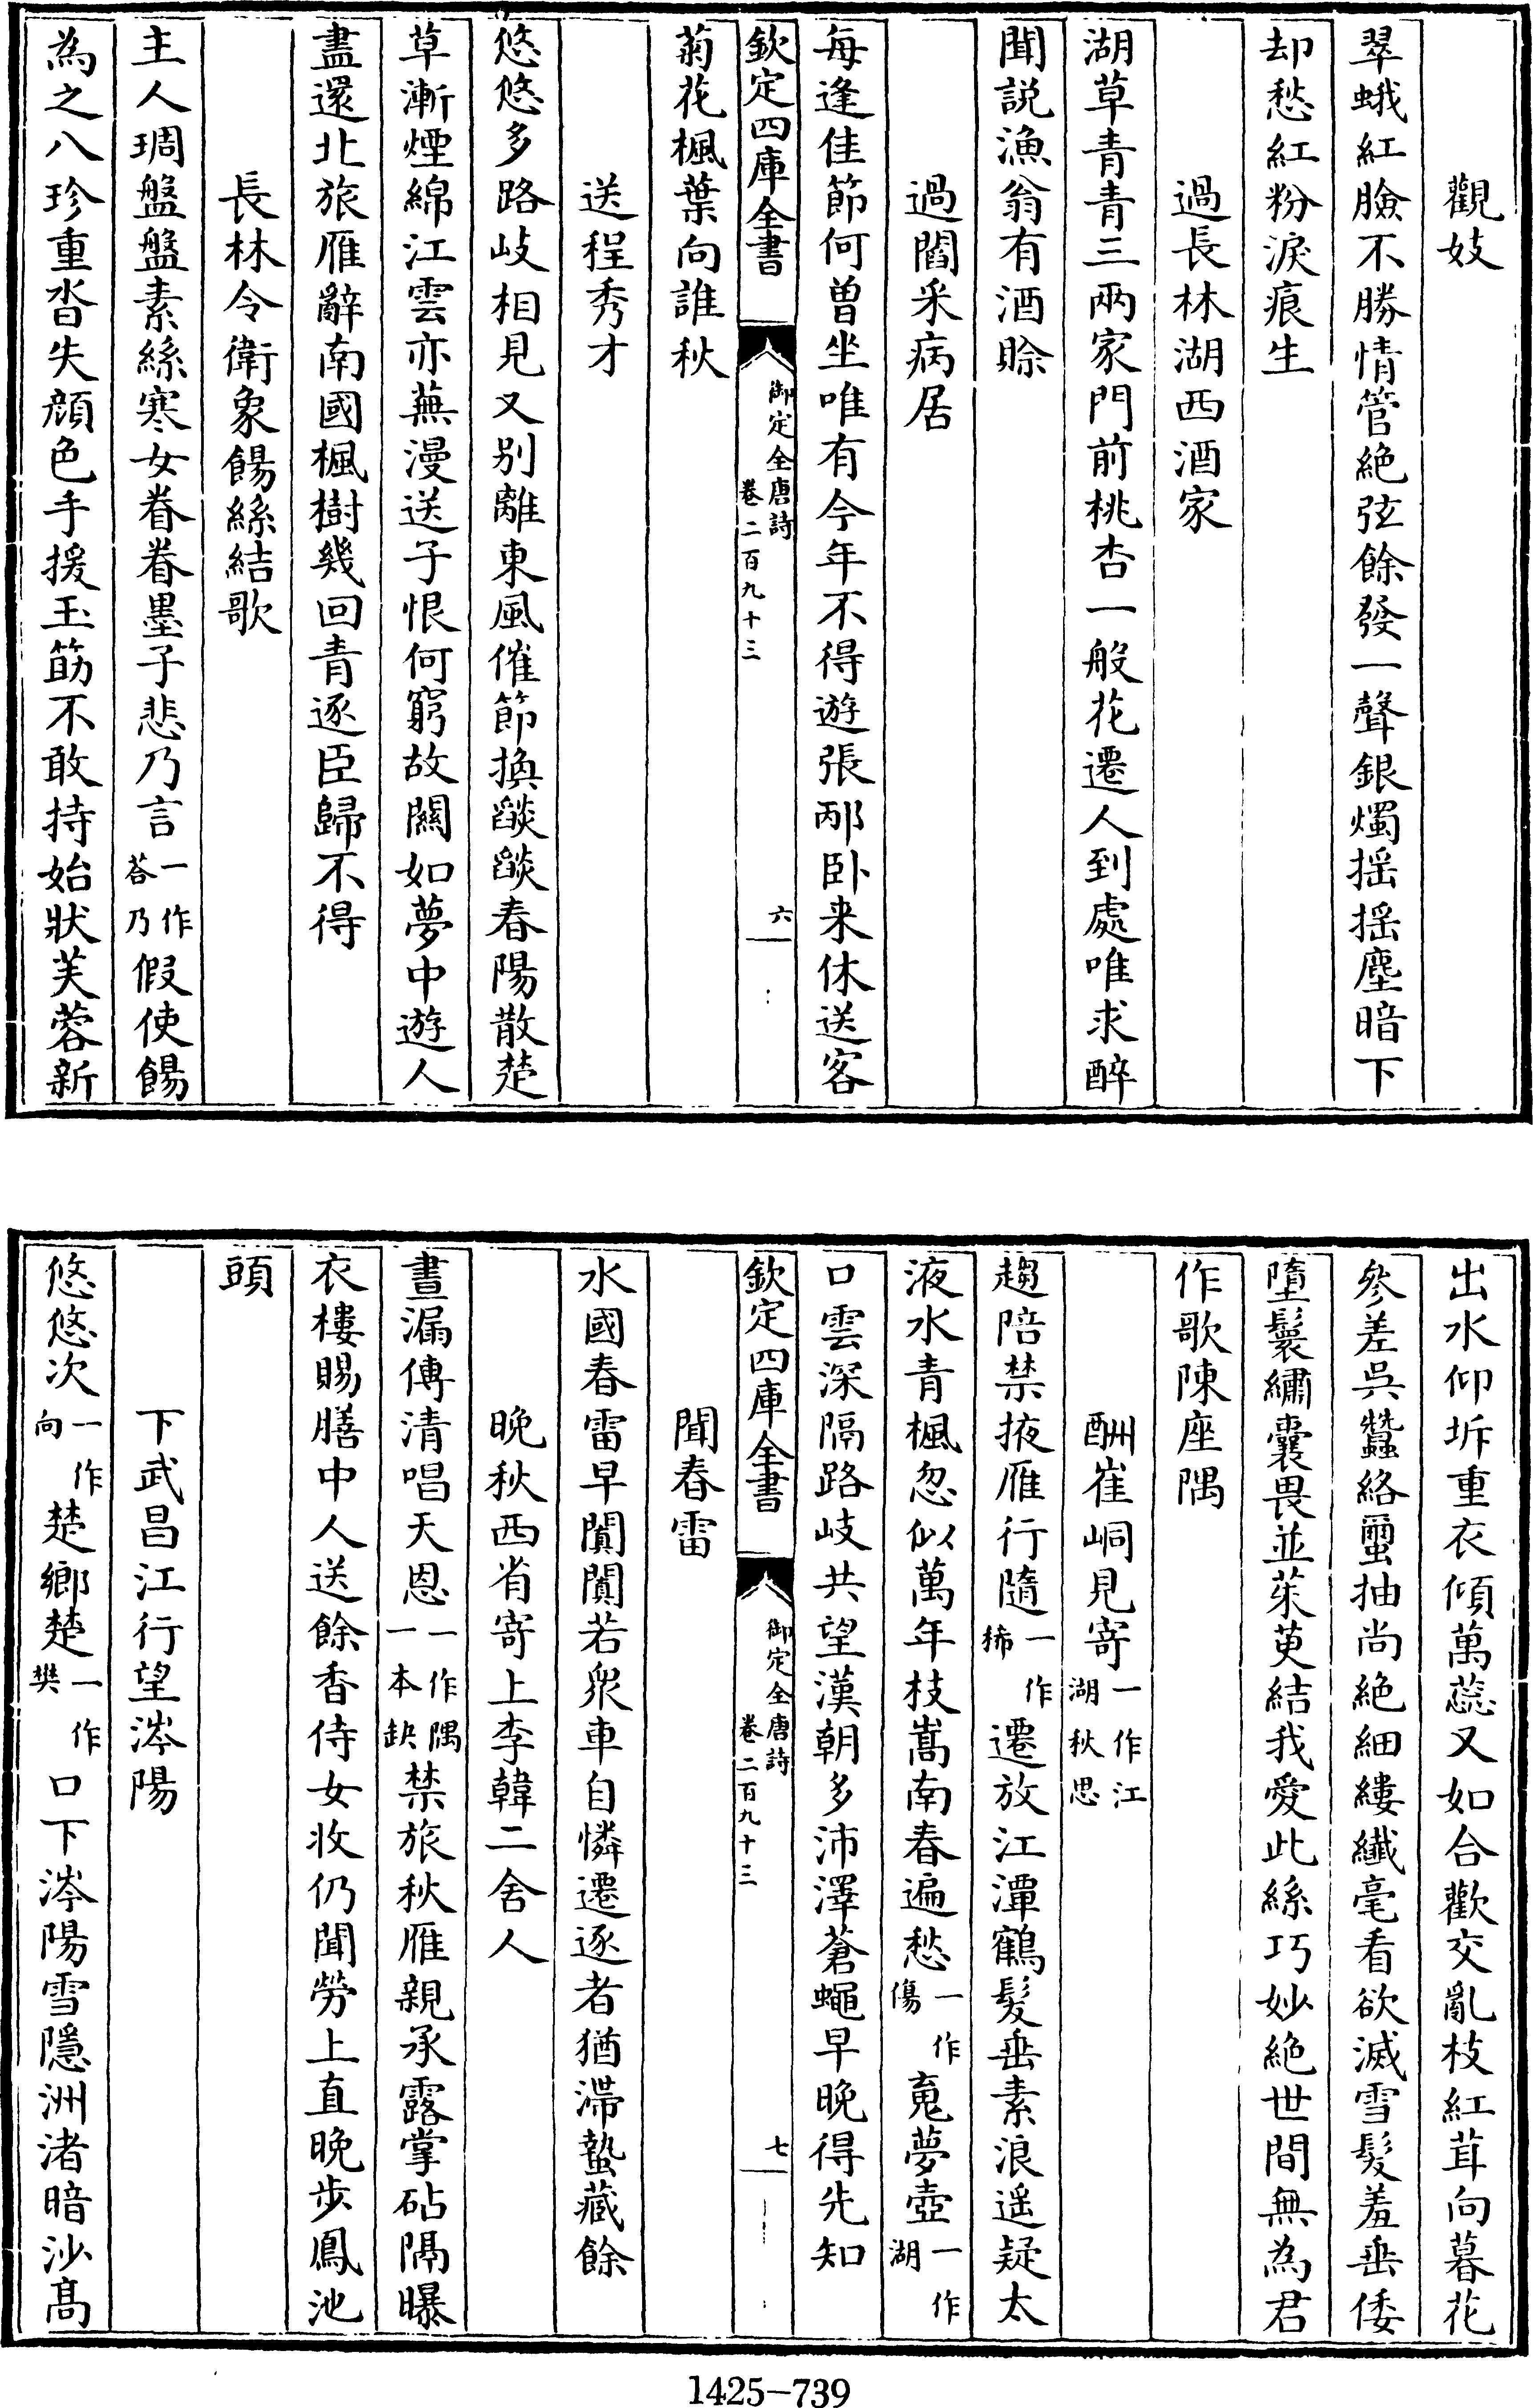 觀妓
翠蛾紅臉不勝情管絶弦餘發一聲銀燭揺揺塵暗下
却愁紅粉淚痕生
過長林湖西酒家
湖草青青三兩家門前桃杏一般花遷人到處唯求醉
聞説漁翁有酒賖
過閻采病居
每逢佳節何曽坐唯有今年不得遊張邴卧来休送客
欽定四庫全書
御定全唐詩
卷二百九十三
六
菊花楓葉向誰秋
送程秀才
悠悠多路岐相見又别離東風催節換燄燄春陽散楚
草漸煙綿江雲亦蕪漫送子恨何窮故關如夢中遊人
盡還北旅雁辭南國楓樹幾回青逐臣歸不得
長林令衛象餳絲結歌
主人琱盤盤素絲寒女眷眷墨子悲乃言一作荅乃假使餳
為之八珍重沓失顔色手援玉筯不敢持始狀芙蓉新
出水仰坼重衣傾萬蕊又如合歡交亂枝紅茸向暮花
參差吳蠶絡蠒抽尚絶細縷纎毫看欲滅雪髪羞垂倭
墮鬟繡囊畏並茱萸結我愛此絲巧妙絶世間無為君
作歌陳座隅
酬崔峒見寄一作江湖秋思
趨陪禁掖雁行隨一作稀遷放江潭鶴髪垂素浪遥疑太
液水青楓忽似萬年枝嵩南春遍愁一作傷䰟夢壺一作湖
口雲深隔路岐共望漢朝多沛澤蒼蠅早晚得先知
欽定四庫全書
御定全唐詩
卷二百九十三
七
聞春雷
水國春雷早闐闐若衆車自憐遷逐者猶滯蟄藏餘
晚秋西省寄上李韓二舍人
晝漏傳清唱天恩一作隅一本缺禁旅秋雁親承露掌砧隔曝
衣樓賜膳中人送餘香侍女收仍聞勞上直晚步鳳池
頭
下武昌江行望涔陽
悠悠次一作向楚鄉楚一作樊口下涔陽雪隱洲渚暗沙髙
1425-739